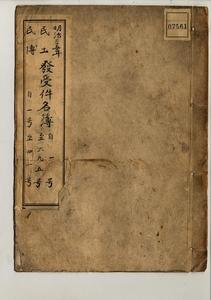 07561
明治
年
發受件名簿
民工
自一号
至六九五号
民
自一号至四一号